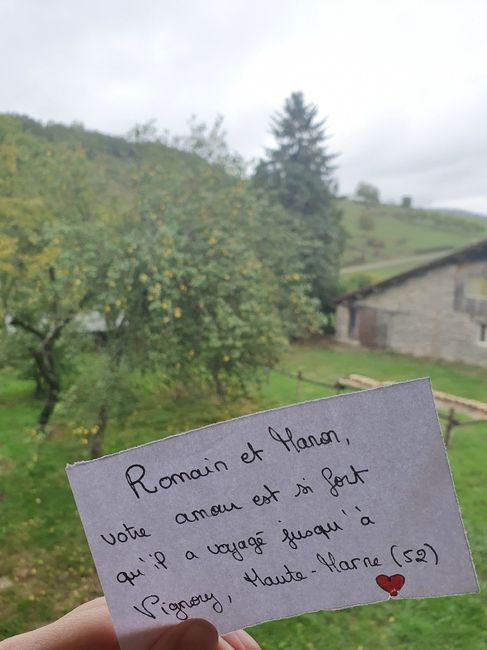 Romain et Manon,
votre amour est si fort
qu'il a voyagé jusqu'à
Vignory, Haute-Marne (52)